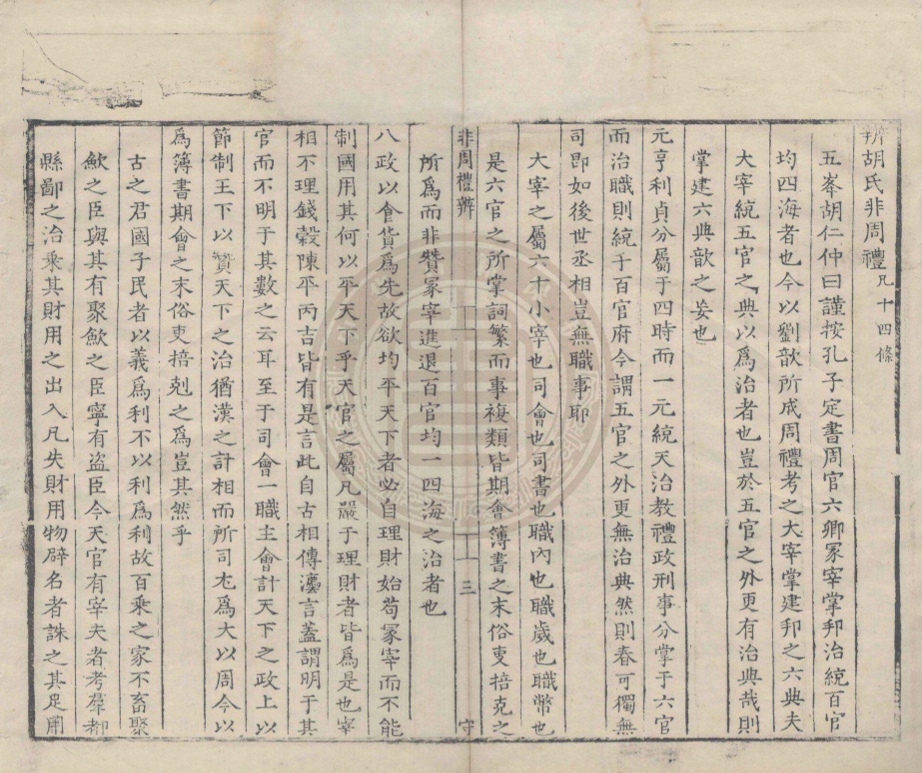 辨胡氏非周禮凡十四條
五峯胡仁仲曰謹按孔子定書周官六卿冢宰掌邦治統百官
均四海者也今以劉歆所成周禮考之大宰掌建邦之六典夫
大宰統五官之典以為治者也豈於五官之外更有治典哉則
掌建六典歆之妄也
元亨利貞分屬于四時而一元統天治教禮政刑事分掌于六官
而治職則統于百官府今謂五官之外更無治典然則春可獨無
司即如後世丞相豈無職事耶
大宰之屬六十小宰也司會也司書也職內也職歲也職幣也
是六官之所掌詞繁而事複類皆期會簿書之末俗吏掊克之
非周禮辨
三
守
所為而非贊冢宰進退百官均一四海之治者也
八政以食貨為先故欲均平天下者必自理財始苟冢宰而不能
制國用其何以平天下乎天官之屬凡嚴于理財者皆為是也宰
相不理錢穀陳平丙吉皆有是言此自古相傳瀍言蓋謂明于其
官而不明于其數之云耳至于司會一職主會計天下之政上以
節制王下以贊天下之治猶漢之計相而所司尤為大以周今以
為簿書期會之末俗吏掊剋之為豈其然乎
古之君國子民者以義為利不以利為利故百乘之家不畜聚
歛之臣與其有聚歛之臣寧有盜臣今天官有宰夫者考羣都
縣鄙之治乘其財用之出入凡失財用物辟名者誅之其足用